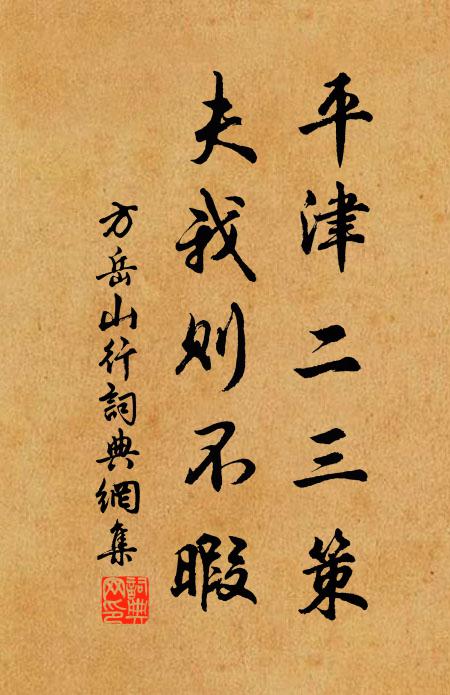 平津二三策
夫我则不暇
方岳山行詞典網集
詞典网印